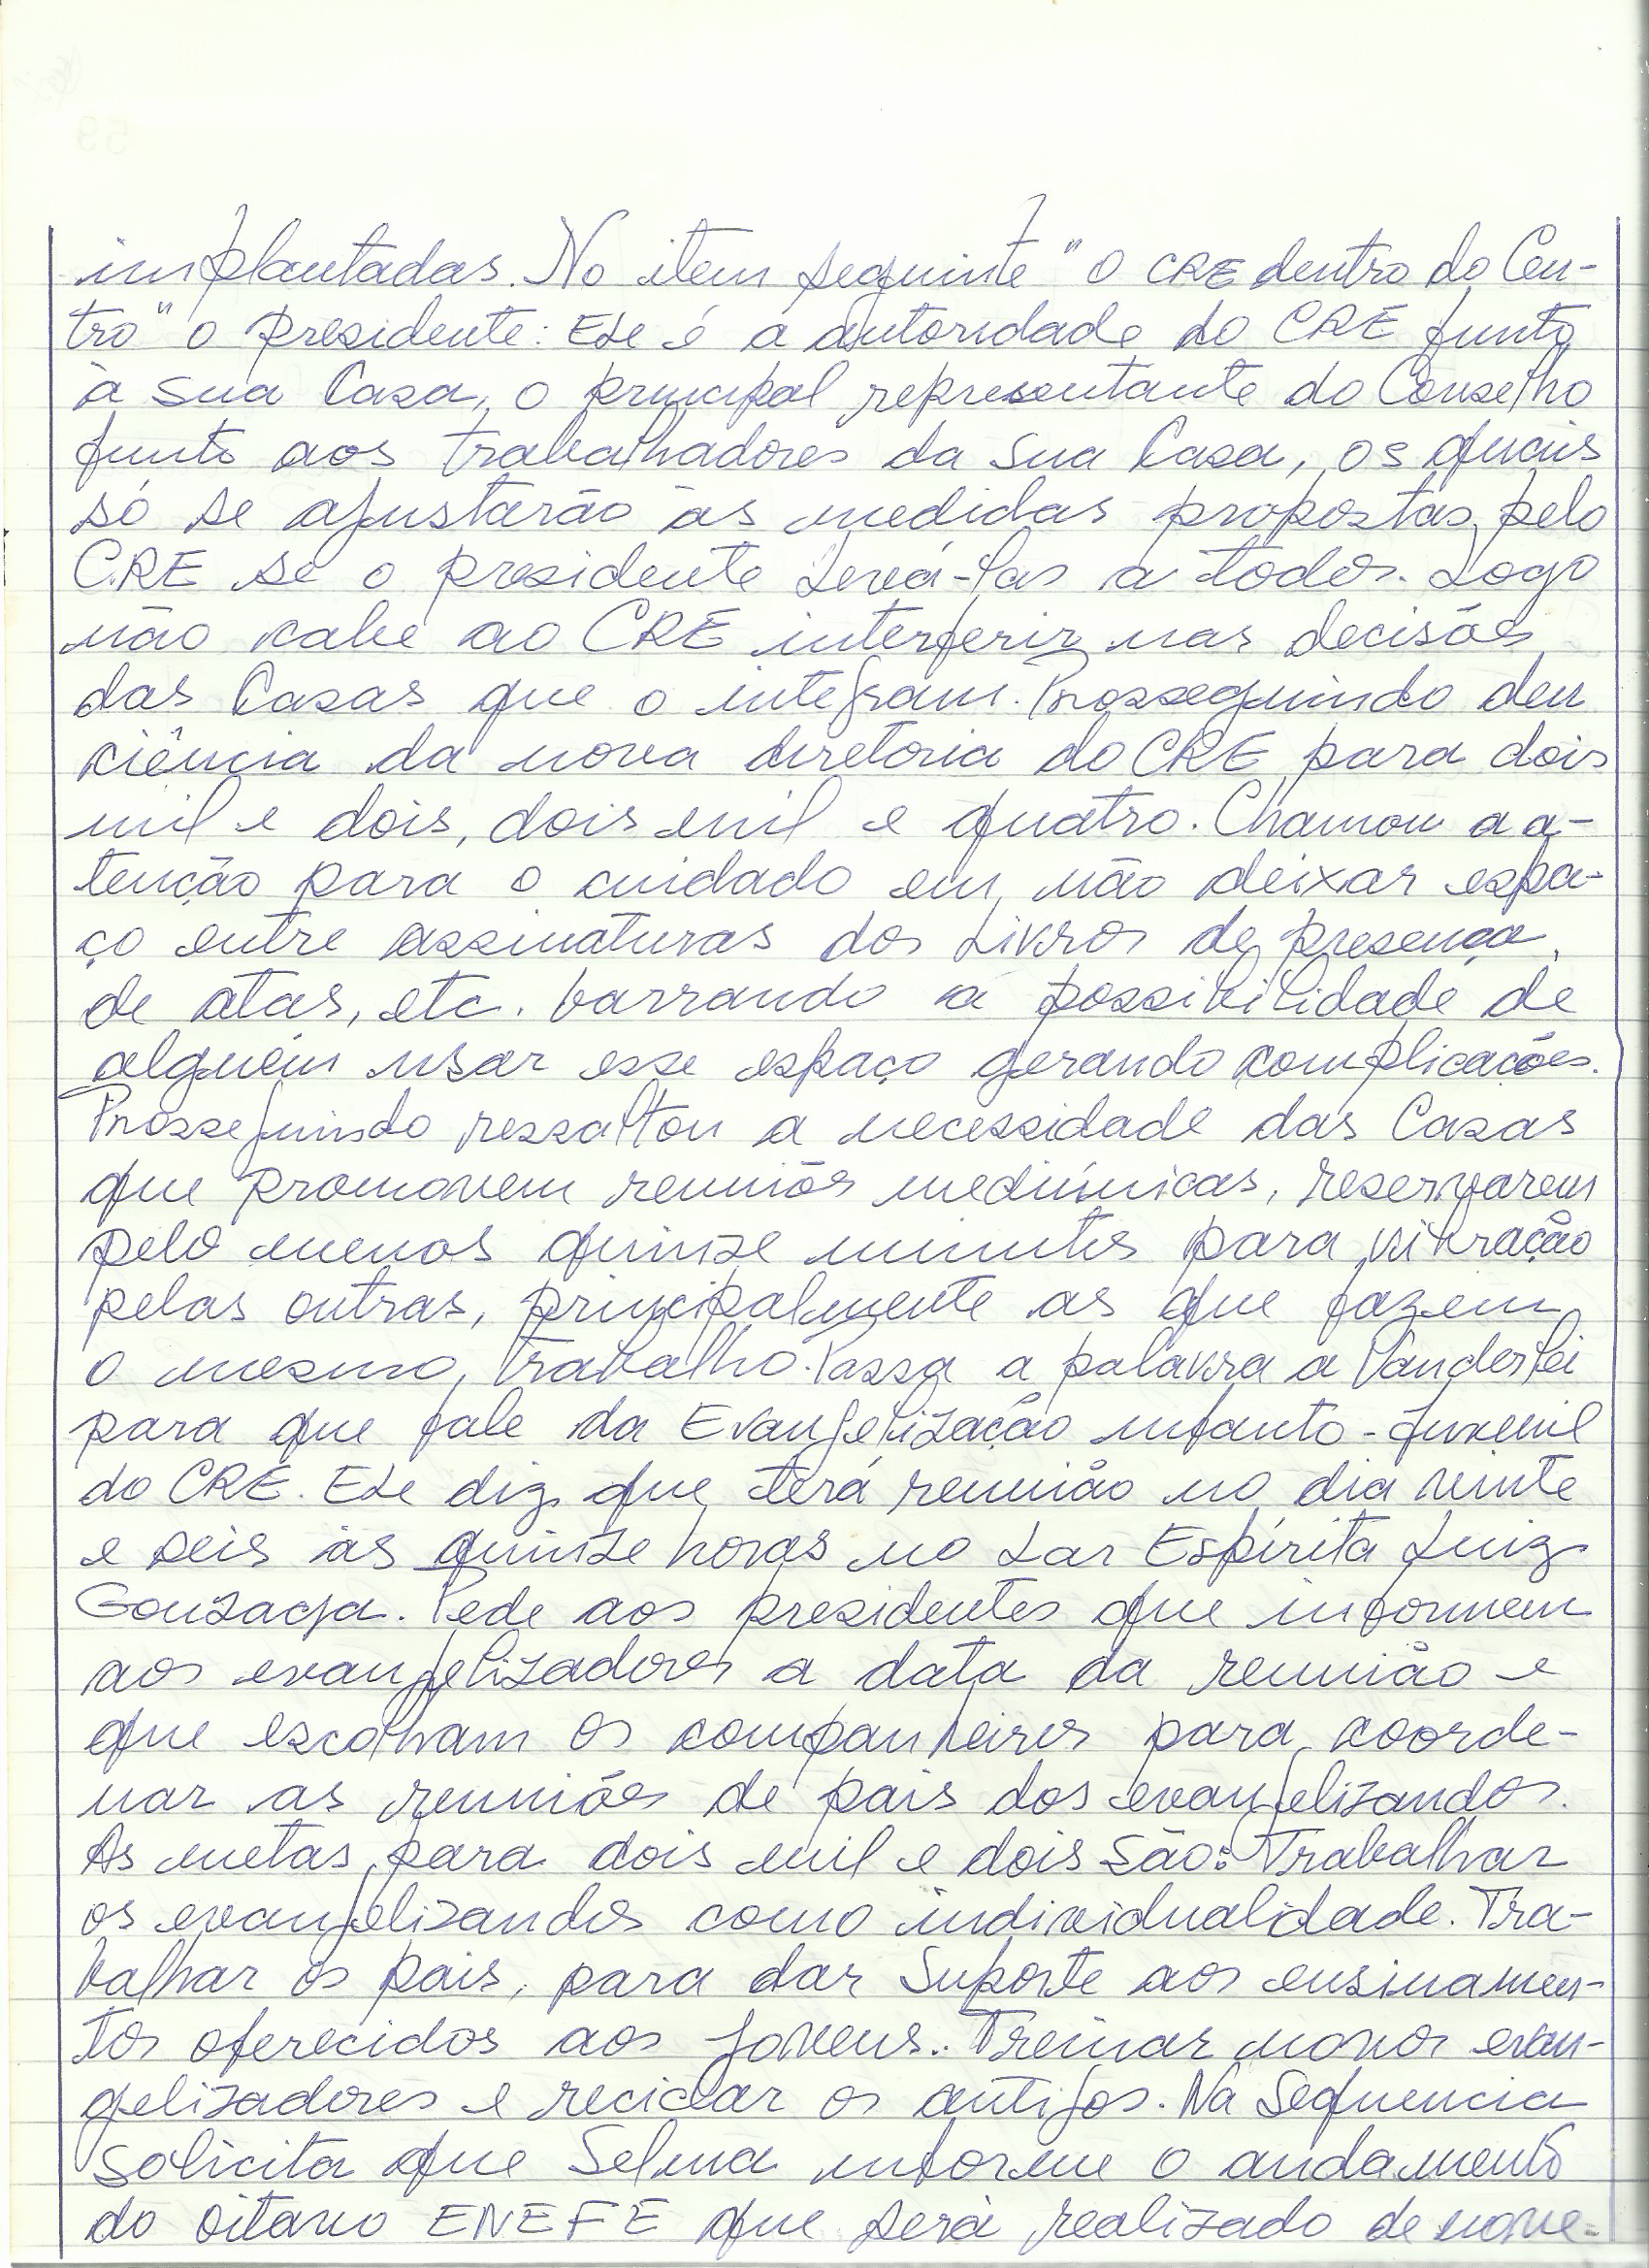 implantadas. No item seguinte "O CRE dentro do Cen-
tro" o presidente: Ele é a autoridade do CRE junto
à sua Casa, o principal representante do Conselho
junto aos trabalhadores da sua Casa, os quais
só se ajustarão às medidas propostas pelo
CRE se o presidente levá-las a todos. Logo
não cabe ao CRE interferir nas decisões
das Casas que o integram. Prosseguindo deu
ciência da nova diretoria do CRE para dois
mil e dois, dois mil e quatro. Chamou a a-
tenção para o cuidado em não deixar espa-
ço entre assinaturas dos Livros de presença,
de atas, etc. barrando a possibilidade de
alguém usar esse espaço gerando complicações.
Prosseguindo ressaltou a necessidade das Casas
que promovem reuniões mediúnicas, reservarem
pelo menos quinze minutos para vibração
pelas outras, principalmente as que fazem
o mesmo trabalho. Passa a palavra a Vanderlei
para que fale da Evangelização infanto-juvenil
do CRE. Ele diz que terá reunião no dia vinte
e seis às quinze horas no Lar Espírita Luiz
Gonzaga. Pede aos presidentes que informem
aos evangelizadores a data da reunião e
que escolham os companheiros para coorde-
nar as reuniões de pais dos evangelizandos.
As metas para dois mil e dois são: Trabalhar
os evangelizandos como individualidade. Tra-
balhar os pais, para dar suporte aos ensinamen-
tos oferecidos aos jovens.. Treinar novos evan-
gelizadores e reciclar os antigos. Na sequencia
solicita que Selma informe o andamento
do oitavo ENEFE que será realizado de nove-